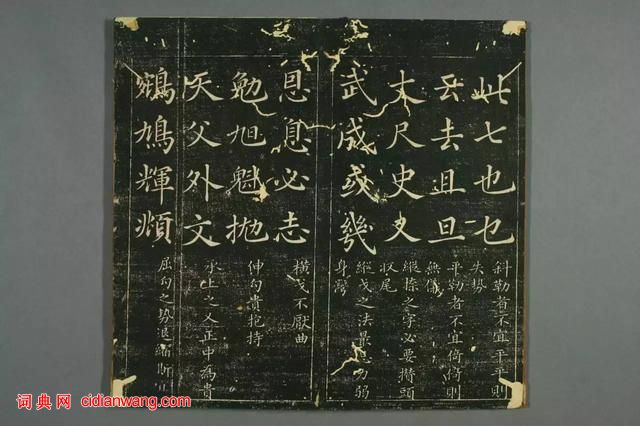 此七也乜
斜勒者不宜平平則
失勢
云去且旦
平勒者不宜倚倚則
無儀
丈尺史又
縱撩之字必要攢頭
收尾
武成或幾
縱戈之法最忌力弱
身彎
思息必志
橫戈不厭曲
勉旭魁拋
伸勾貴抱持
天父外文
承上之乂正中為貴
鵷鳩輝頫
屈勾之勢退縮斯
词典网 cidianwang.com